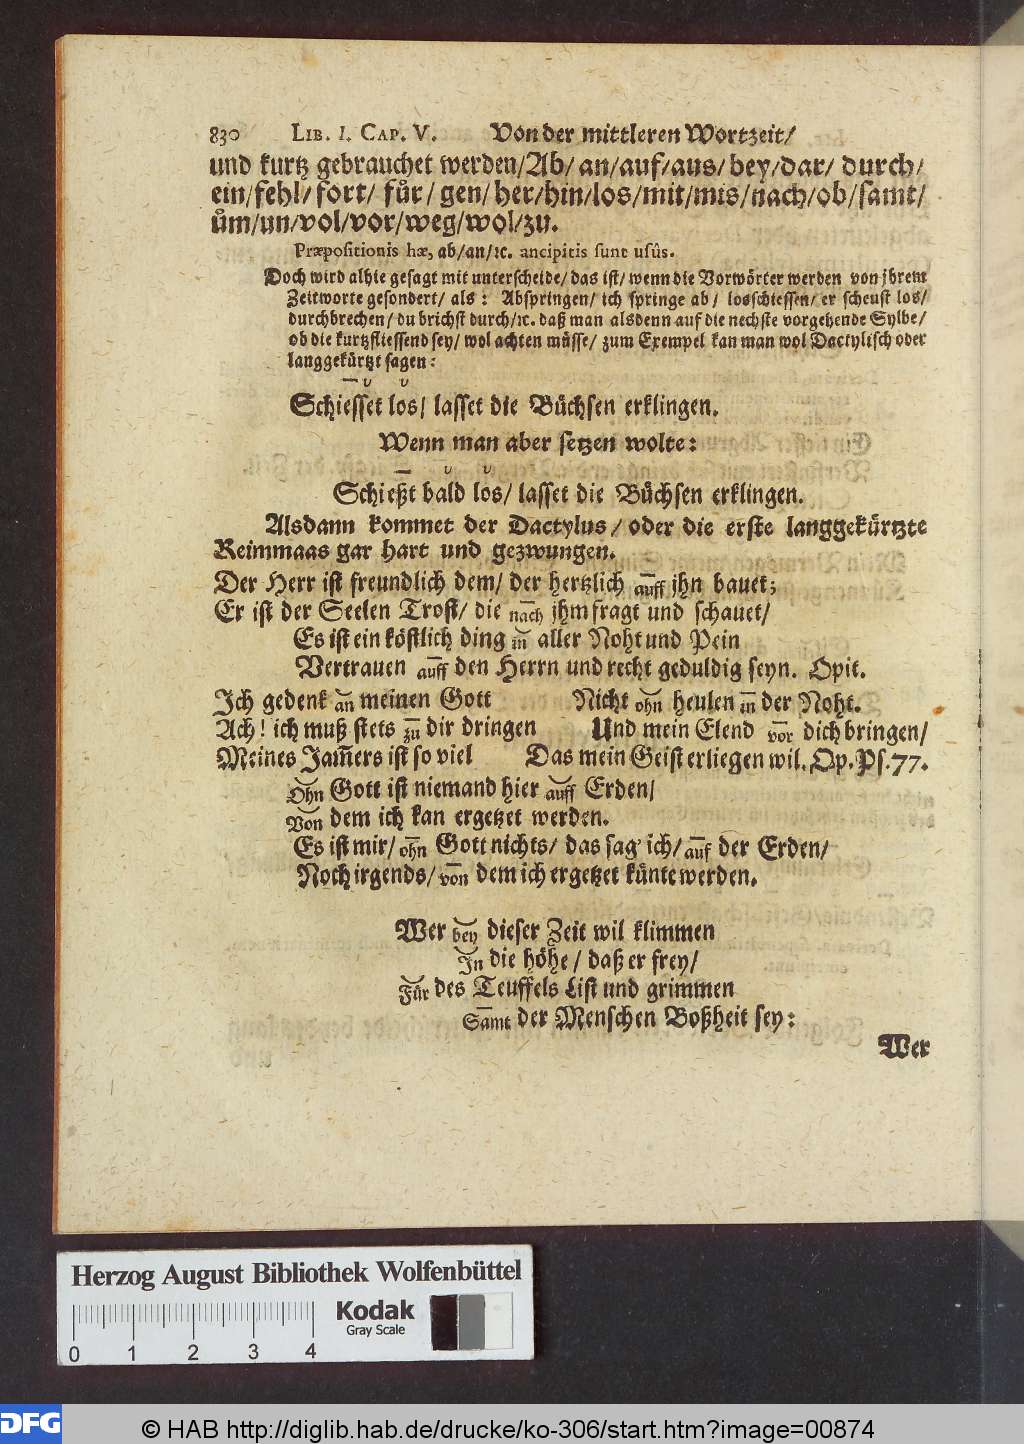 830 LIB. I. CAP. V. Von der mittleren Wortzeit/
und kurtz gebrauchet werden/Ab/ an/auf/aus/bey/dar/ durch/
ein/fehl/fort/ fuͤr/ gen/her/hin/los/mit/mis/nach/ob/samt/
uͤm/un/vol/vor/weg/wol/zu.
Præpositionis hæ, ab/an/ꝛc. ancipitis sunt usûs.
Doch wird alhie gesagt mit unterscheide/das ist/wenn die Vorwoͤrter werden von jhrem
Zeitworte gesondert/als: Abspringen/ich springe ab/ losschiessen/er scheust los/
durchbrechen/du brichst durch/ꝛc. daß man alsdenn auf die nechste vorgehende Sylbe/
ob die kurtzfliessend sey/wol achten muͤsse/zum Exempel kan man wol Dactylisch oder
langgekuͤrtzt sagen:
— ᴗ ᴗ
Schiesset los/ lasset die Buͤchsen erklingen.
Wenn man aber setzen wolte:
— ᴗ ᴗ
Schießt bald los/ lasset die Buͤchsen erklingen.
Alsdann kommet der Dactylus/oder die erste langgekuͤrtzte
Reimmaas gar hart und gezwungen.
Der Herr ist freundlich dem/ der hertzlich auff jhn bauet;
Er ist der Seelen Trost/ die nach jhm fragt und schauet/
Es ist ein koͤstlich ding in aller Noht und Pein
Vertrauen auff den Herrn und recht geduldig seyn. Opit.
Ich gedenk an meinen Gott Nicht ohn heulen in der Noht.
Ach! ich muß stets zu dir dringen Und mein Elend vor dich bringen/
Meines Jam̃ers ist so viel Das mein Geist erliegen wil. Op. Ps. 77.
Ohn Gott ist niemand hier auff Erden/
Von dem ich kan ergetzet werden.
Es ist mir/ohn Gott nichts/ das sag' ich/auf der Erden/
Noch irgends/von dem ich ergetzet kuͤnte werden.
Wer bey dieser Zeit wil klimmen
In die hoͤhe/ daß er frey/
Fuͤr des Teuffels List und grimmen
Samt der Menschen Boßheit sey:
Wer
Herzog August Bibliothek Wolfenbüttel
Kodak
Gray Scale
0 1 2 3 4
DFG © HAB http://diglib.hab.de/drucke/ko-306/start.htm?image=00874